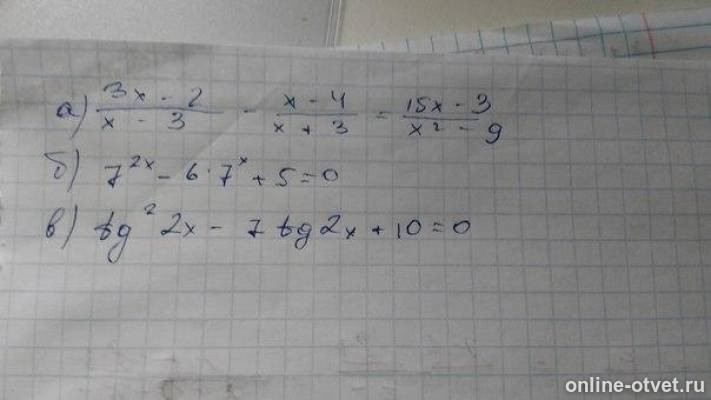 а) (3x - 2)/(x - 3) - (x - 4)/(x + 3) = (15x - 3)/(x² - 9)
б) 7^(2x) - 6·7^x + 5 = 0
в) tg² 2x - 7 tg 2x + 10 = 0
online-otvet.ru